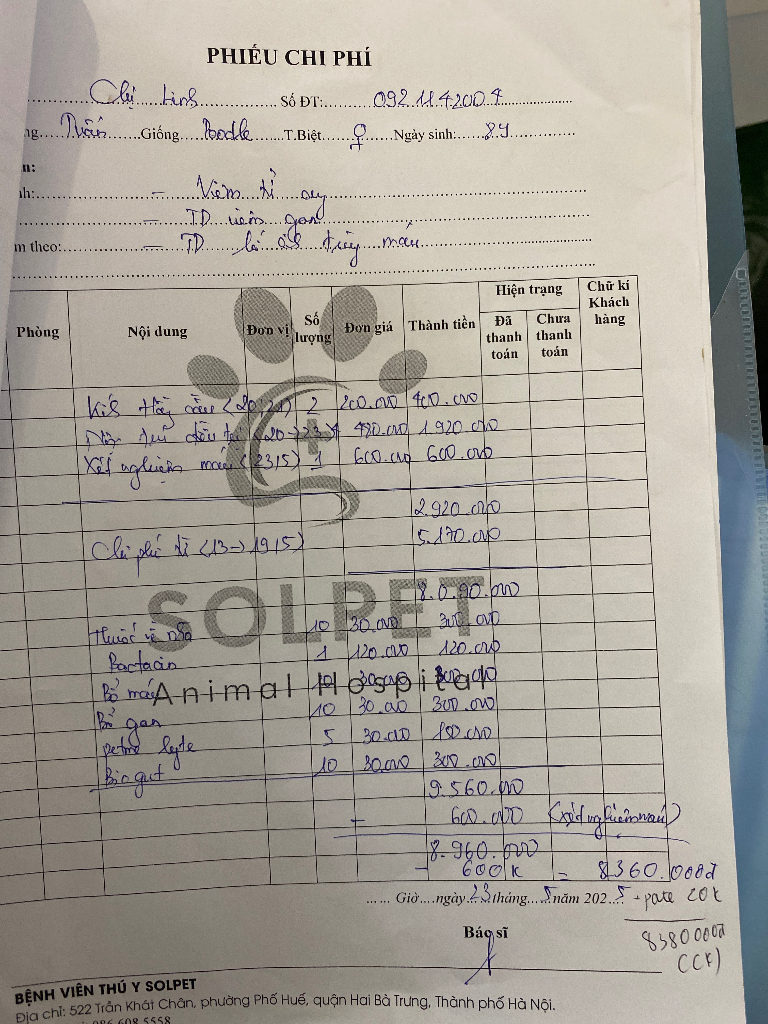 PHIẾU CHI PHÍ
Chị Linh Số ĐT: 092 114 2004
Giống Poodle T.Biệt ♀ Ngày sinh: 8y
n:
h: – Viêm tử cung
– TD viêm gan
m theo: – TD
máu
Phòng Nội dung Đơn vị Số lượng Đơn giá Thành tiền Hiện trạng Chữ kí Khách hàng
Đã thanh toán Chưa thanh toán
(20, 21) 2 200.000 400.000
(20→23) 4 480.000 1.920.000
Xét nghiệm máu (23/5) 1 600.000 600.000
2.920.000
Chi phí từ (13→19/5) 5.170.000
8.090.000
SOLPET
Thuốc về nhà 10 30.000 300.000
1 120.000 120.000
Animal Hospital
Bổ máu 10 30.000 300.000
Bổ gan 10 30.000 300.000
lyte 5 30.000
Biogut 10 30.000 300.000
9.560.000
– 600.000 (xét nghiệm máu)
8.960.000
– 600k = 8360.000đ
...... Giờ....ngày 23 tháng 5 năm 2025 + pate 20k
8380000đ
(CK)
Bác sĩ
BỆNH VIÊN THÚ Y SOLPET
Địa chỉ: 522 Trần Khát Chân, phường Phố Huế, quận Hai Bà Trưng, Thành phố Hà Nội.
086 608 5558